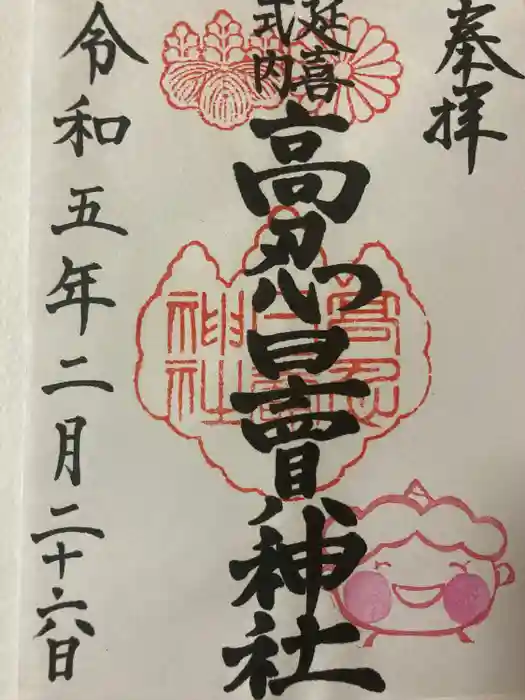 奉拝
延喜
式内
高忍日賣神社
令和五年二月二十六日
高忍日賣神社